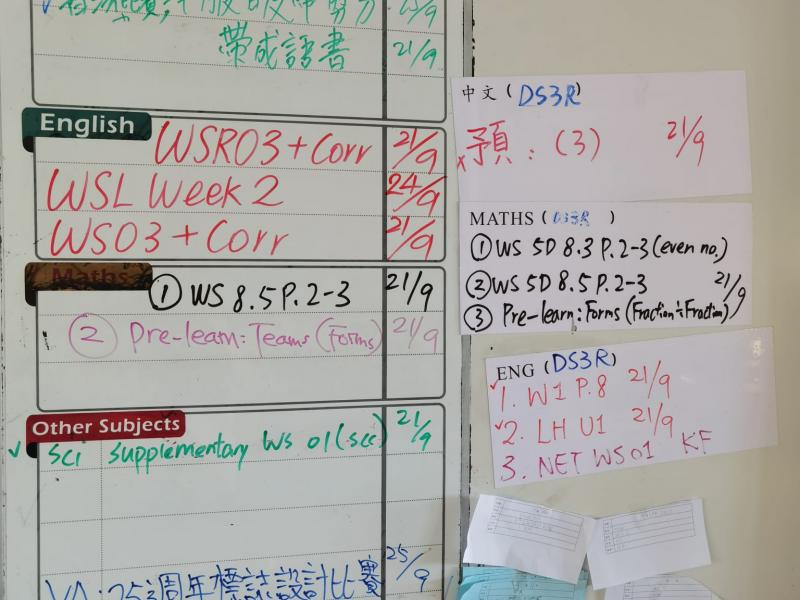 帶成語書 21/9
English
WSR03 + Corr 21/9
WSL Week 2 24/9
WS03 + Corr 21/9
Maths
① WS 8.5 P.2-3 21/9
② Pre-learn: Teams (Forms) 21/9
Other Subjects
Sci supplementary WS 01 21/9
VA: 25週年標誌設計比賽 25/9
中文 (DS3R)
預：(3) 21/9
MATHS (DS3R)
① WS 5D 8.3 P.2-3 (even no.)
② WS 5D 8.5 P.2-3 21/9
③ Pre-learn: Forms (Fraction÷Fraction)
ENG (DS3R)
1. W1 P.8 21/9
2. LH U1 21/9
3. NET WS01 KF